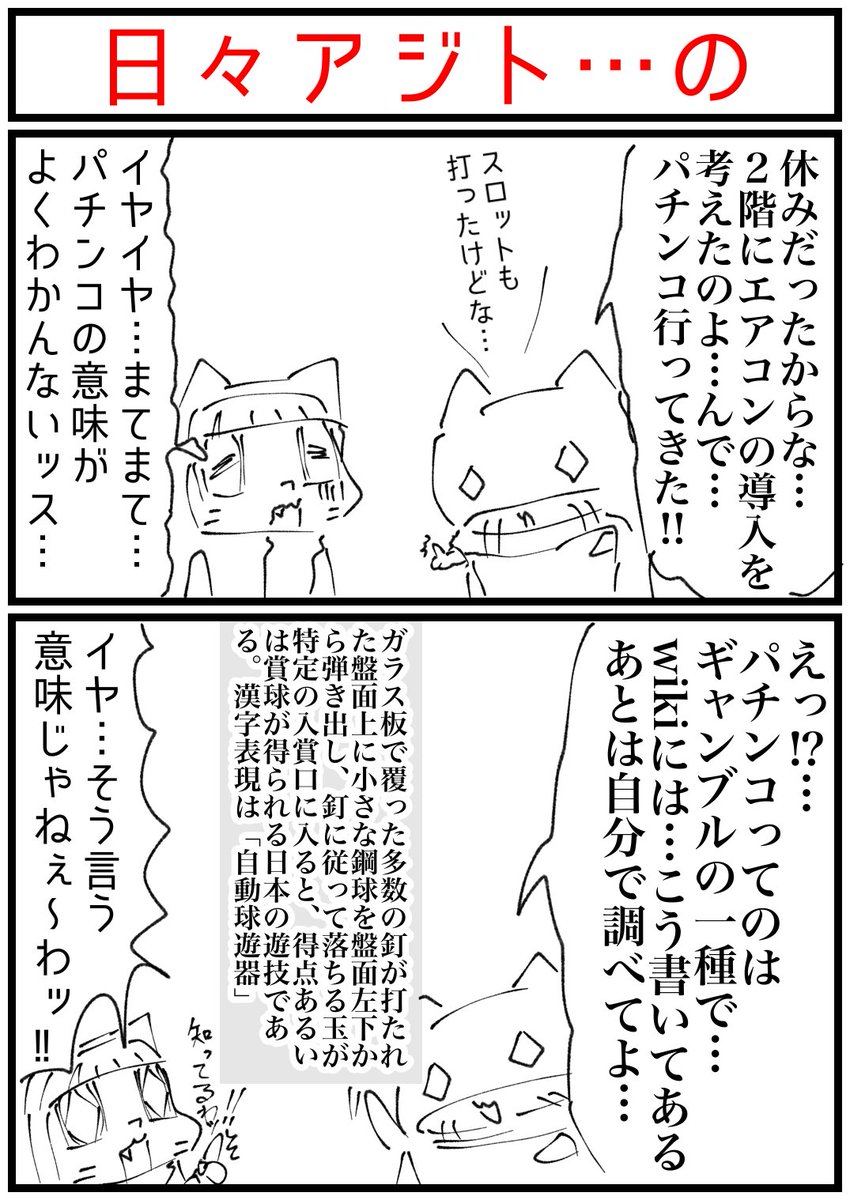 日々アジト…の
休みだったからな…
２階にエアコンの導入を
考えたのよ…んで…
パチンコ行ってきた!!
スロットも
打ったけどな…
イヤイヤ…まてまて…
パチンコの意味が
よくわかんないッス…
えっ!?…
パチンコってのは
ギャンブルの一種で…
wikiには…こう書いてある
あとは自分で調べてよ…
ガラス板で覆った多数の釘が打たれ
た盤面上に小さな鋼球を盤面左下か
ら弾き出し、釘に従って落ちる玉が
特定の入賞口に入ると、得点あるい
は賞球が得られる日本の遊技であ
る。漢字表現は「自動球遊器」
イヤ…そう言う
意味じゃねぇ〜わッ!!
知ってるわ!!